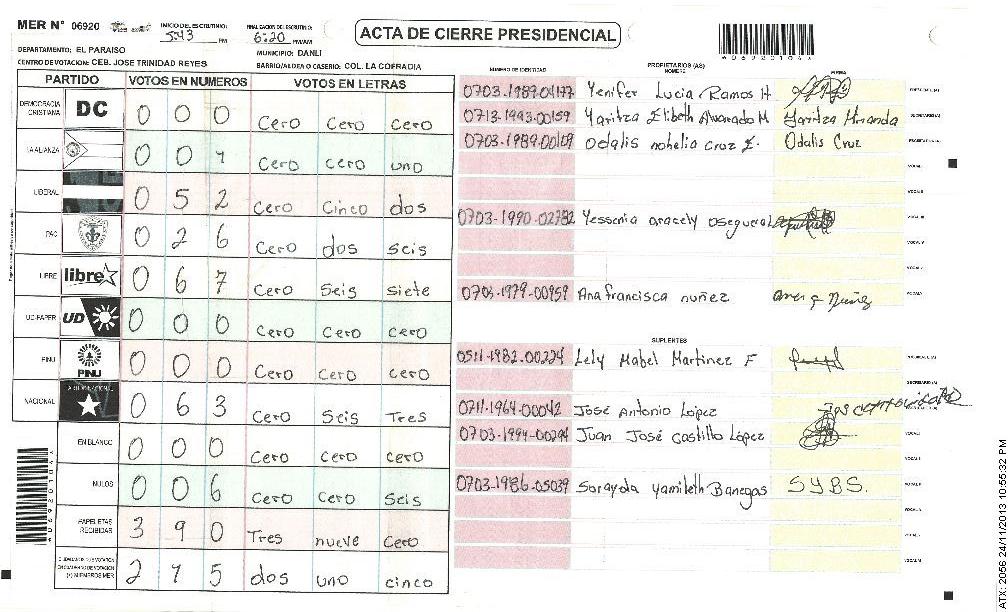 MER N° 06920 INICIO DEL ESCRUTINIO: 5:43 PM FINALIZACION DEL ESCRUTINIO: 6:20 PM/AM
ACTA DE CIERRE PRESIDENCIAL
DEPARTAMENTO: EL PARAISO MUNICIPIO: DANLI
CENTRO DE VOTACION: CEB. JOSE TRINIDAD REYES BARRIO/ALDEA O CASERIO: COL. LA COFRADIA
PARTIDO VOTOS EN NUMEROS VOTOS EN LETRAS
DEMOCRACIA CRISTIANA DC 0 0 0 Cero Cero Cero
LA ALIANZA 0 0 1 Cero Cero uno
LIBERAL 0 5 2 Cero Cinco dos
PAC 0 2 6 Cero dos seis
LIBRE libre 0 6 7 Cero Seis siete
UD-FAPER UD 0 0 0 Cero Cero Cero
PINU PINU 0 0 0 Cero Cero Cero
NACIONAL 0 6 3 Cero Seis Tres
EN BLANCO 0 0 0 Cero Cero Cero
NULOS 0 0 6 Cero Cero Seis
PAPELETAS RECIBIDAS 3 9 0 Tres nueve Cero
2 1 5 dos uno cinco
NUMERO DE IDENTIDAD PROPIETARIOS (AS) NOMBRE FIRMA
0703-1989-04177 Yenifer Lucia Ramos H
0713-1993-00159 Yaritza Elibeth Alvarado M Yaritza Miranda
0703-1989-00109 Odalis nohelia cruz E. Odalis Cruz
0703-1990-02782 Yessenia aracely oseguera
0703-1979-00959 Ana francisca nuñez
SUPLENTES
0511-1982-00224 Lely Mabel Martinez F
0711-1964-00042 José Antonio López
0703-1994-00294 Juan José Castillo López
0703-1986-05039 Sorayda Yamileth Banegas S.Y.B.S.
ATX: 2056 24/11/2013 10:55:32 PM